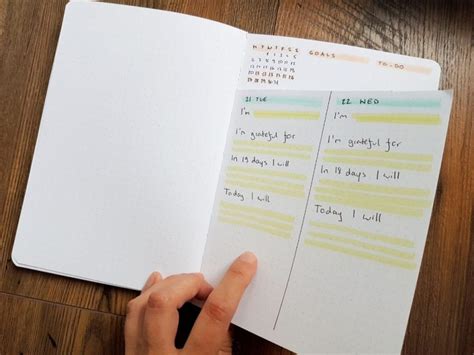 M T W T F S S
GOALS
TO-DO
21 TUE
I'm
I'm grateful for
In 19 days I will
Today I will
22 WED
I'm
I'm grateful for
In 18 days I will
Today I will